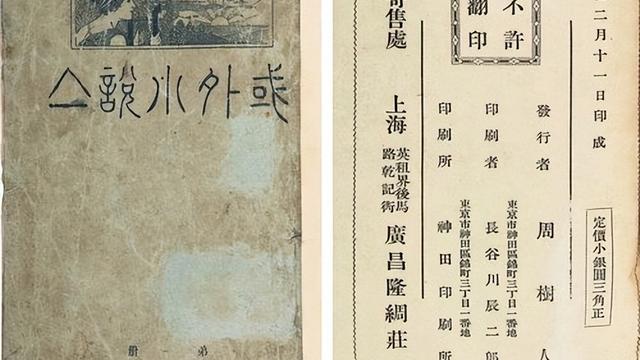 或外小說亼
弟一册
二月十一日印成
定價小銀圓三角正
發行者 周樹人
印刷者 東京市神田區錦町三丁目一番地 長谷川辰二郎
印刷所 東京市神田區錦町三丁目一番地 神田印刷所
不許
翻印
寄售處 上海 英租界後馬路乾記衖 廣昌隆綢莊